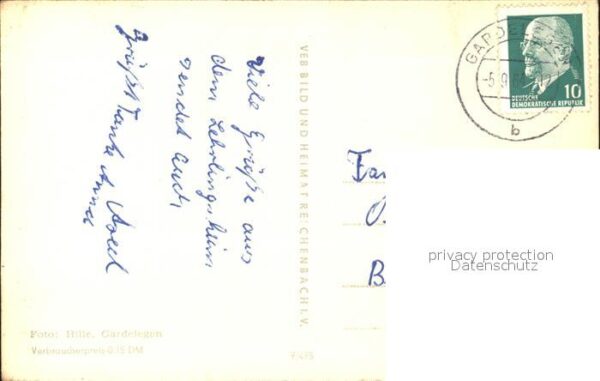 Viele Grüße aus
dem Lehrlingsheim
sendet Euch
Axel
Grüßt Tante Anna
VEB BILD UND HEIMAT REICHENBACH I. V.
Foto: Hille, Gardelegen
Verbraucherpreis 0,15 DM
GARDELEGEN
-5.9
b
10
DEUTSCHE
DEMOKRATISCHE REPUBLIK
Fa
B
privacy protection
Datenschutz